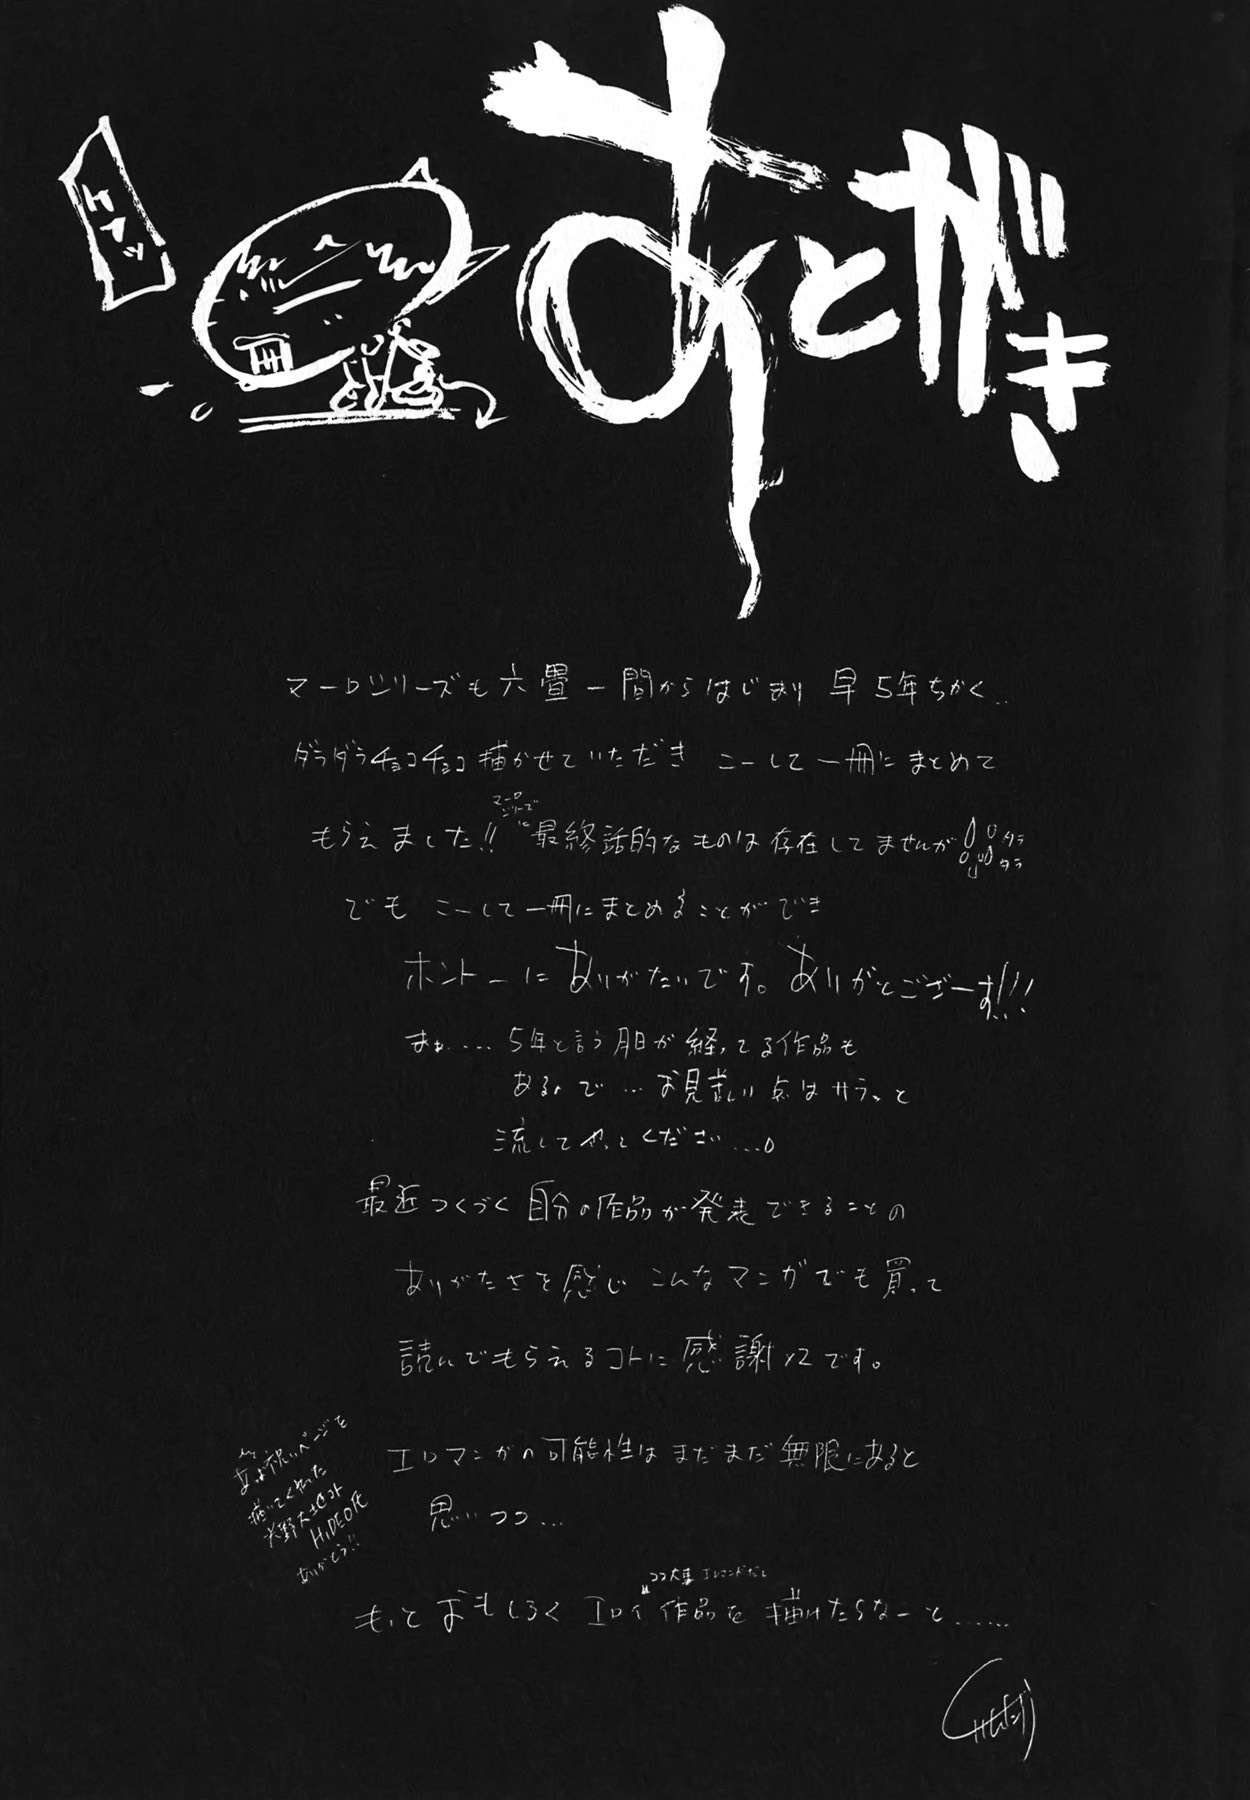 あとがき
マーロシリーズも六畳一間からはじまり 早5年ちかく..
ダラダラチョコチョコ描かせていただき こーして一冊にまとめて
もらえました!! マーロシリーズに 最終話的なものは存在してませんが タラタラ
でも こーして一冊にまとめることができ
ホントーにありがたいです。ありがとございーす!!!
まぁ.... 5年と言う月日が経ってる作品も
あるので... お見苦しい点はサラっと
流してやってください....
最近つくづく自分の作品が発表できることの
ありがたさを感じ こんなマンガでも買って
読んでもらえるコトに感謝×2です。
エロマンガの可能性はまだまだ無限にあると
思いつつ...
ココ大事 エロマンガだし
もっとおもしろくエロイ作品を描けたらなーと......
お祝いページを
描いてくれた
HIDEO氏
ありがとう!!